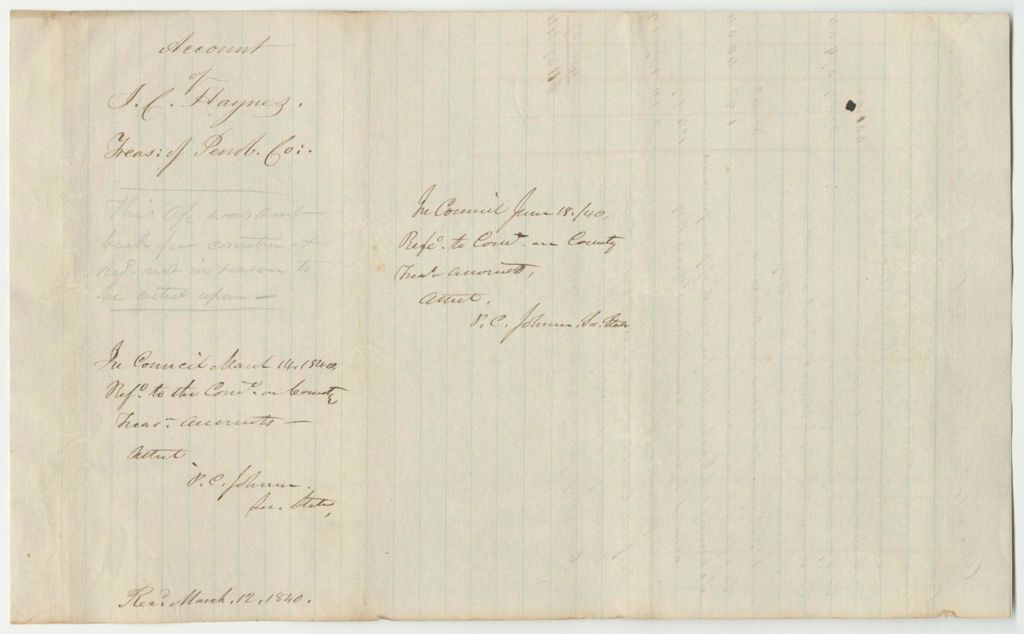 Account
of
J. C. Haynes.
Treas: of Penob. Co:.
This a/c was sent
back for correction &
recd. not in season to
be acted upon —
In Council March 14, 1840
Refd. to the Comee. on County
Treas. accounts —
Attest
P. C. Johnson.
Sec. State,
Recd. March. 12, 1840.
In Council June 18./40.
Refd. to Comee. on County
Treas. accounts,
Attest,
P. C. Johnson, Sec. State,